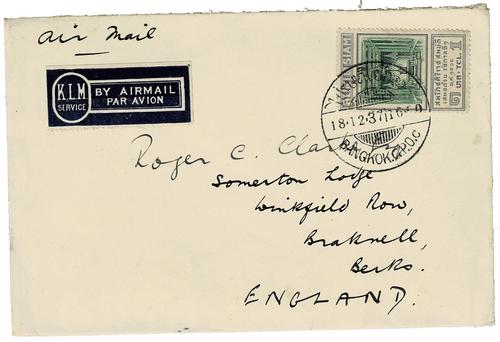 Air Mail
K.L.M
SERVICE
BY AIRMAIL
PAR AVION
SIAM
TCL. 1
18·12·37
BANGKOK G.P.O.C
Roger C.
Somerton Lodge
Winkfield Row,
Bracknell,
Berks.
ENGLAND.